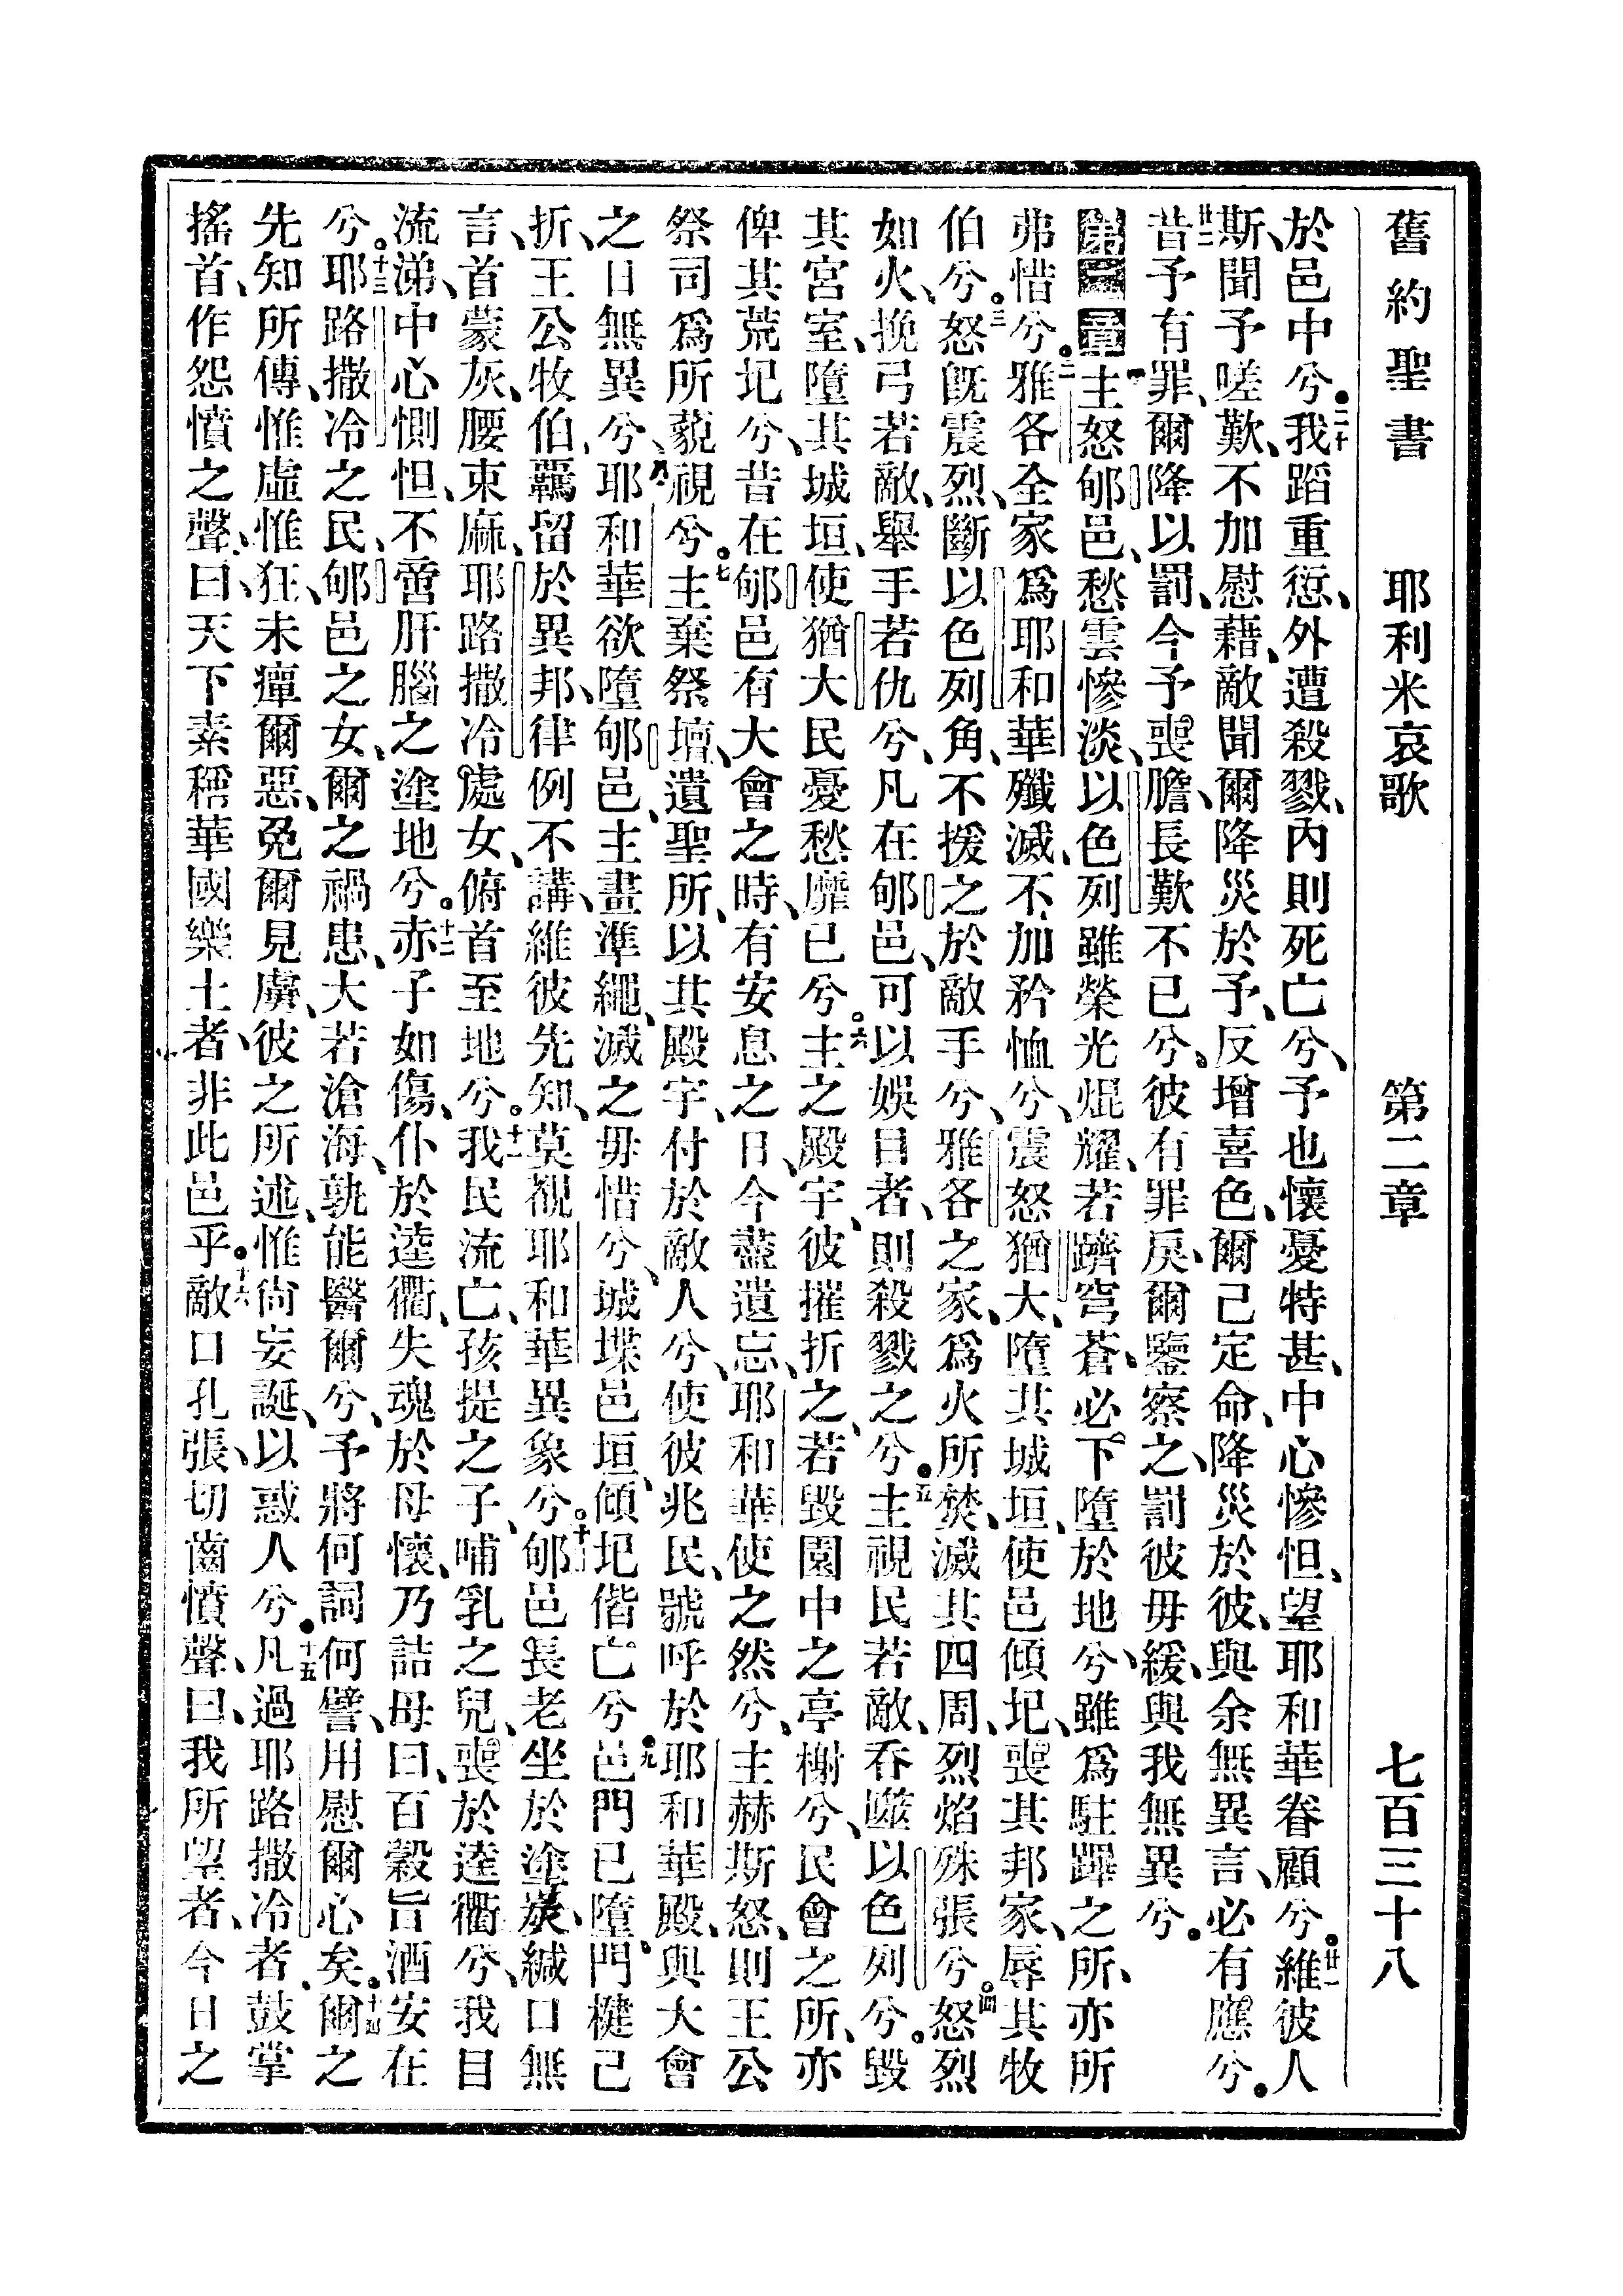 舊約聖書 耶利米哀歌 第二章 七百三十八
於邑中兮。二十我蹈重愆、外遭殺戮、內則死亡兮、予也懷憂特甚、中心慘怛、望耶和華眷顧兮。廿一維彼人
斯、聞予嗟歎、不加慰藉、敵聞爾降災於予、反增喜色、爾已定命、降災於彼、與余無異言、必有應兮。
廿二昔予有罪、爾降以罰、今予喪膽、長歎不已兮。彼有罪戾、爾鑒察之、罰彼毋緩、與我無異兮。
第二章一主怒郇邑、愁雲慘淡、以色列雖榮光焜耀、若躋穹蒼、必下墮於地兮、雖爲駐蹕之所、亦所
弗惜兮。二雅各全家爲耶和華殲滅、不加矜恤兮、震怒猶大、墮其城垣、使邑傾圮、喪其邦家、辱其牧
伯兮。三怒旣震烈、斷以色列角、不援之於敵手兮、雅各之家、爲火所焚、滅其四周、烈焰殊張兮。四怒烈
如火、挽弓若敵、舉手若仇兮、凡在郇邑、可以娛目者、則殺戮之兮。五主視民若敵、吞噬以色列兮。毀
其宮室、墮其城垣、使猶大民憂愁靡已兮。六主之殿宇、彼摧折之、若毀園中之亭榭兮、民會之所、亦
俾其荒圮兮、昔在郇邑有大會之時、有安息之日、今盡遺忘、耶和華使之然兮、主赫斯怒、則王公
祭司爲所藐視兮。七主棄祭壇、遺聖所、以其殿宇、付於敵人兮、使彼兆民、號呼於耶和華殿、與大會
之日無異兮、八耶和華欲墮郇邑、主畫準繩、滅之毋惜兮、城堞邑垣、傾圮偕亡兮。九邑門已墮、門楗已
折、王公牧伯、羈留於異邦、律例不講、維彼先知、莫覩耶和華異象兮。十郇邑長老坐於塗炭、緘口無
言、首蒙灰、腰束麻、耶路撒冷處女、俯首至地兮。十一我民流亡、孩提之子、哺乳之兒、喪於逵衢兮、我目
流涕、中心惻怛、不啻肝腦之塗地兮。十二赤子如傷、仆於逵衢、失魂於母懷、乃詰母曰、百穀旨酒安在
兮。十三耶路撒冷之民、郇邑之女、爾之禍患、大若滄海、孰能醫爾兮、予將何詞何譬、用慰爾心矣。十四爾之
先知所傳、惟虛惟狂、未癉爾惡、免爾見虜、彼之所述、惟尙妄誕、以惑人兮。十五凡過耶路撒冷者、鼓掌
搖首、作怨憤之聲、曰、天下素稱華國樂土者、非此邑乎。十六敵口孔張、切齒憤聲、曰、我所望者、今日之